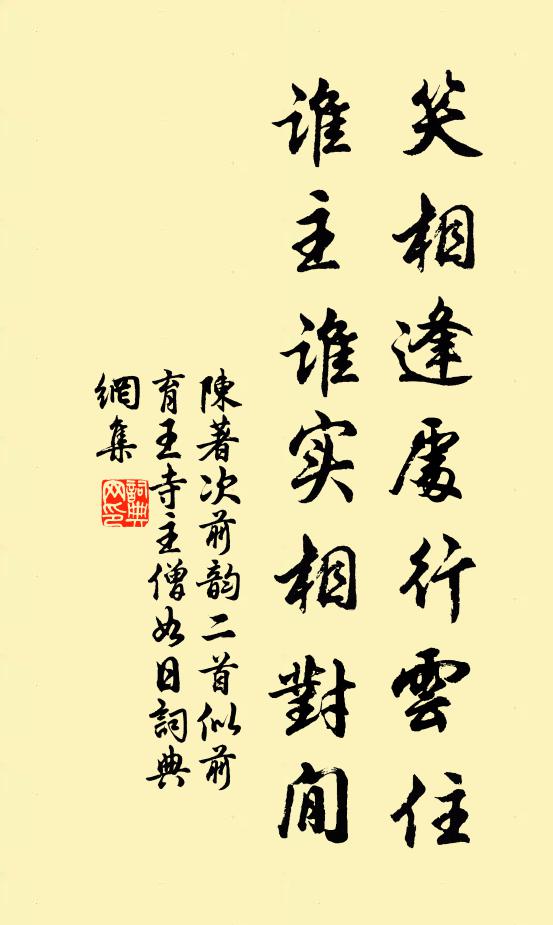 笑相逢處行雲住
誰主誰实相對閒
陳著次前韵二首似前
育王寺主僧如日詞典
網集
詞典
网印